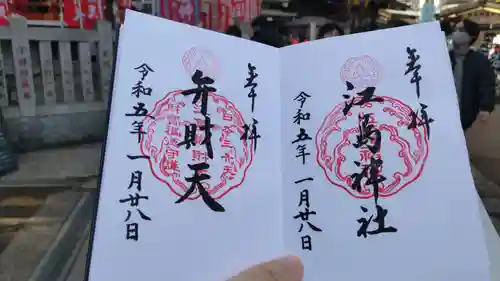 奉拝
江島神社
令和五年一月廿八日
奉拝
弁財天
令和五年一月廿八日